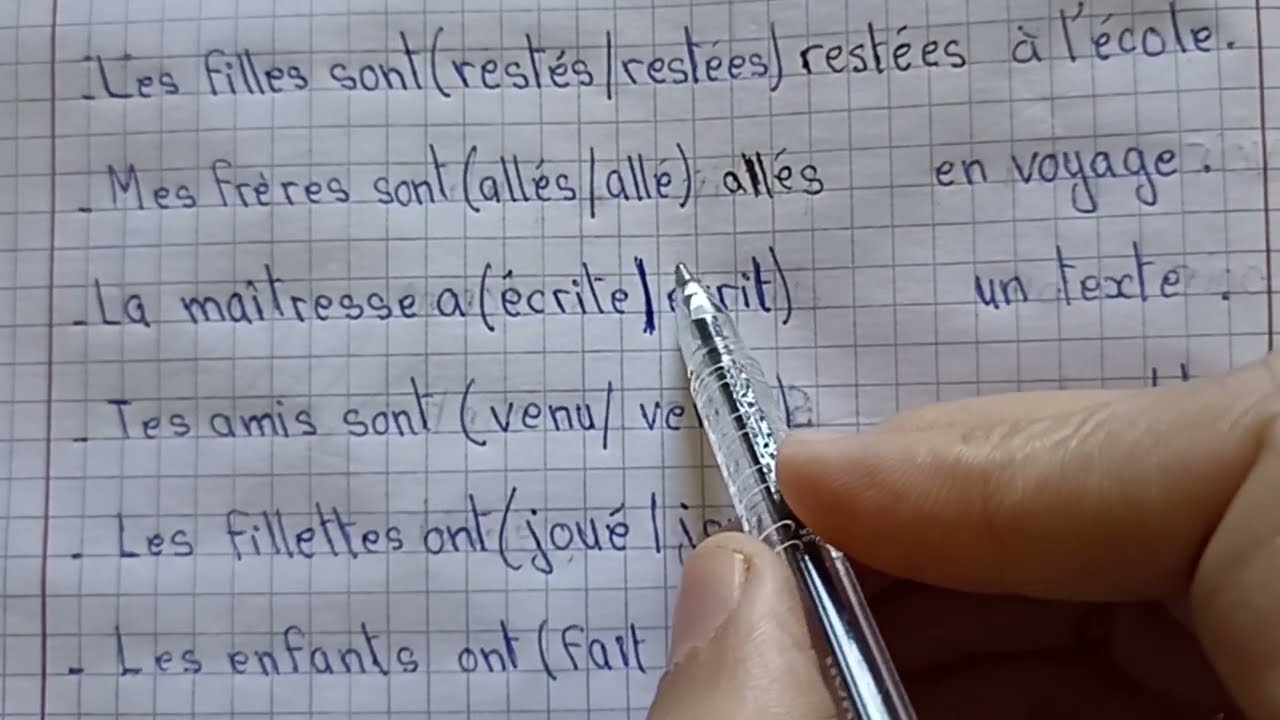 .Les filles sont (restés/restées) restées à l'école.
. Mes frères sont (allés/allé) allés en voyage.
. La maîtresse a (écrite/écrit) un texte.
. Tes amis sont (venu/
. Les fillettes ont (joué/
. Les enfants ont (fait